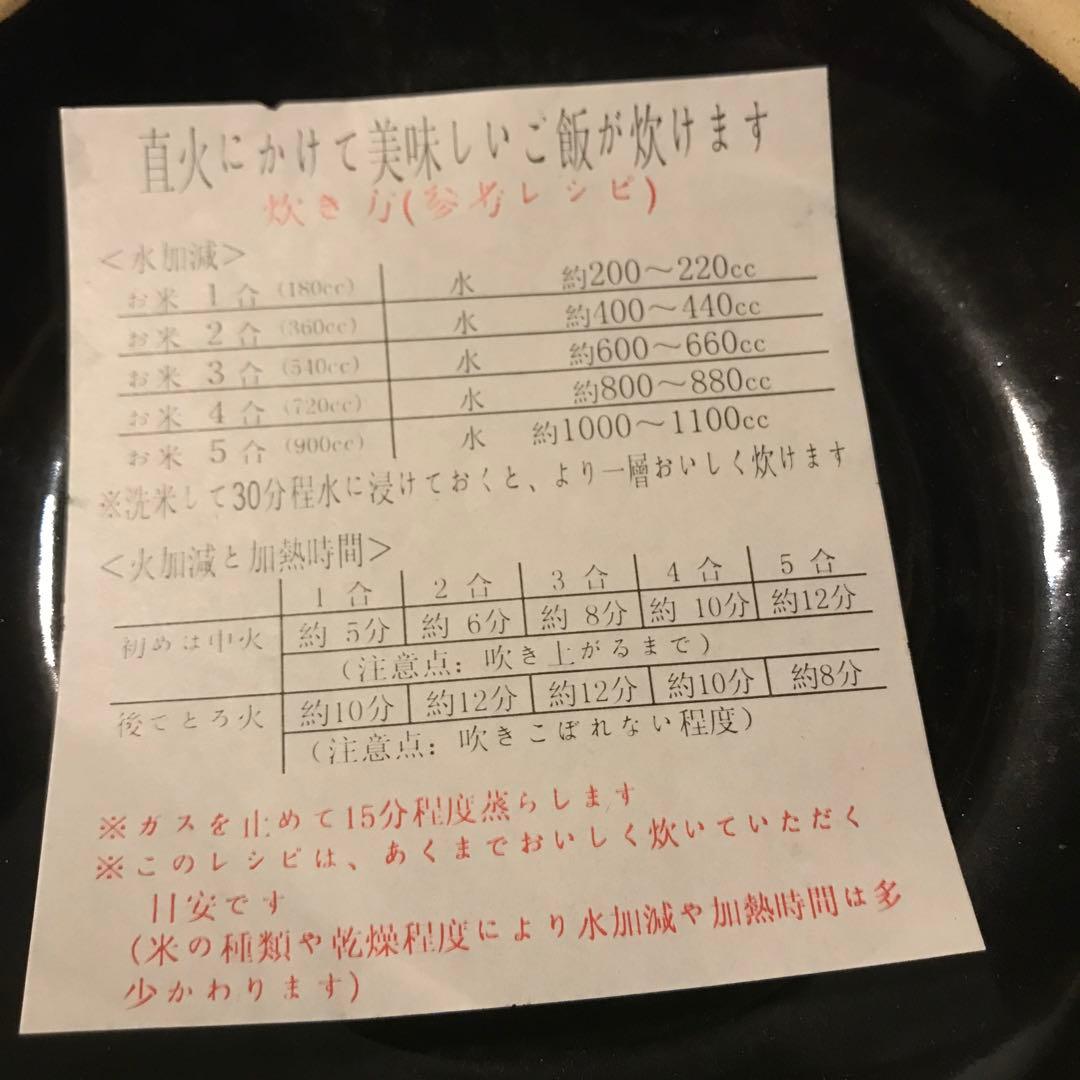 直火にかけて美味しいご飯が炊けます
炊き方(参考レシピ)
＜水加減＞
お米 1 合 (180cc) 水 約200〜220cc
お米 2 合 (360cc) 水 約400〜440cc
お米 3 合 (540cc) 水 約600〜660cc
お米 4 合 (720cc) 水 約800〜880cc
お米 5 合 (900cc) 水 約1000〜1100cc
※洗米して30分程水に浸けておくと、より一層おいしく炊けます
＜火加減と加熱時間＞
1 合 2 合 3 合 4 合 5 合
初めは中火 約 5分 約 6分 約 8分 約 10分 約12分
(注意点: 吹き上がるまで)
後でとろ火 約10分 約12分 約12分 約10分 約8分
(注意点: 吹きこぼれない程度)
※ガスを止めて15分程度蒸らします
※このレシピは、あくまでおいしく炊いていただく
目安です
(米の種類や乾燥程度により水加減や加熱時間は多
少かわります)